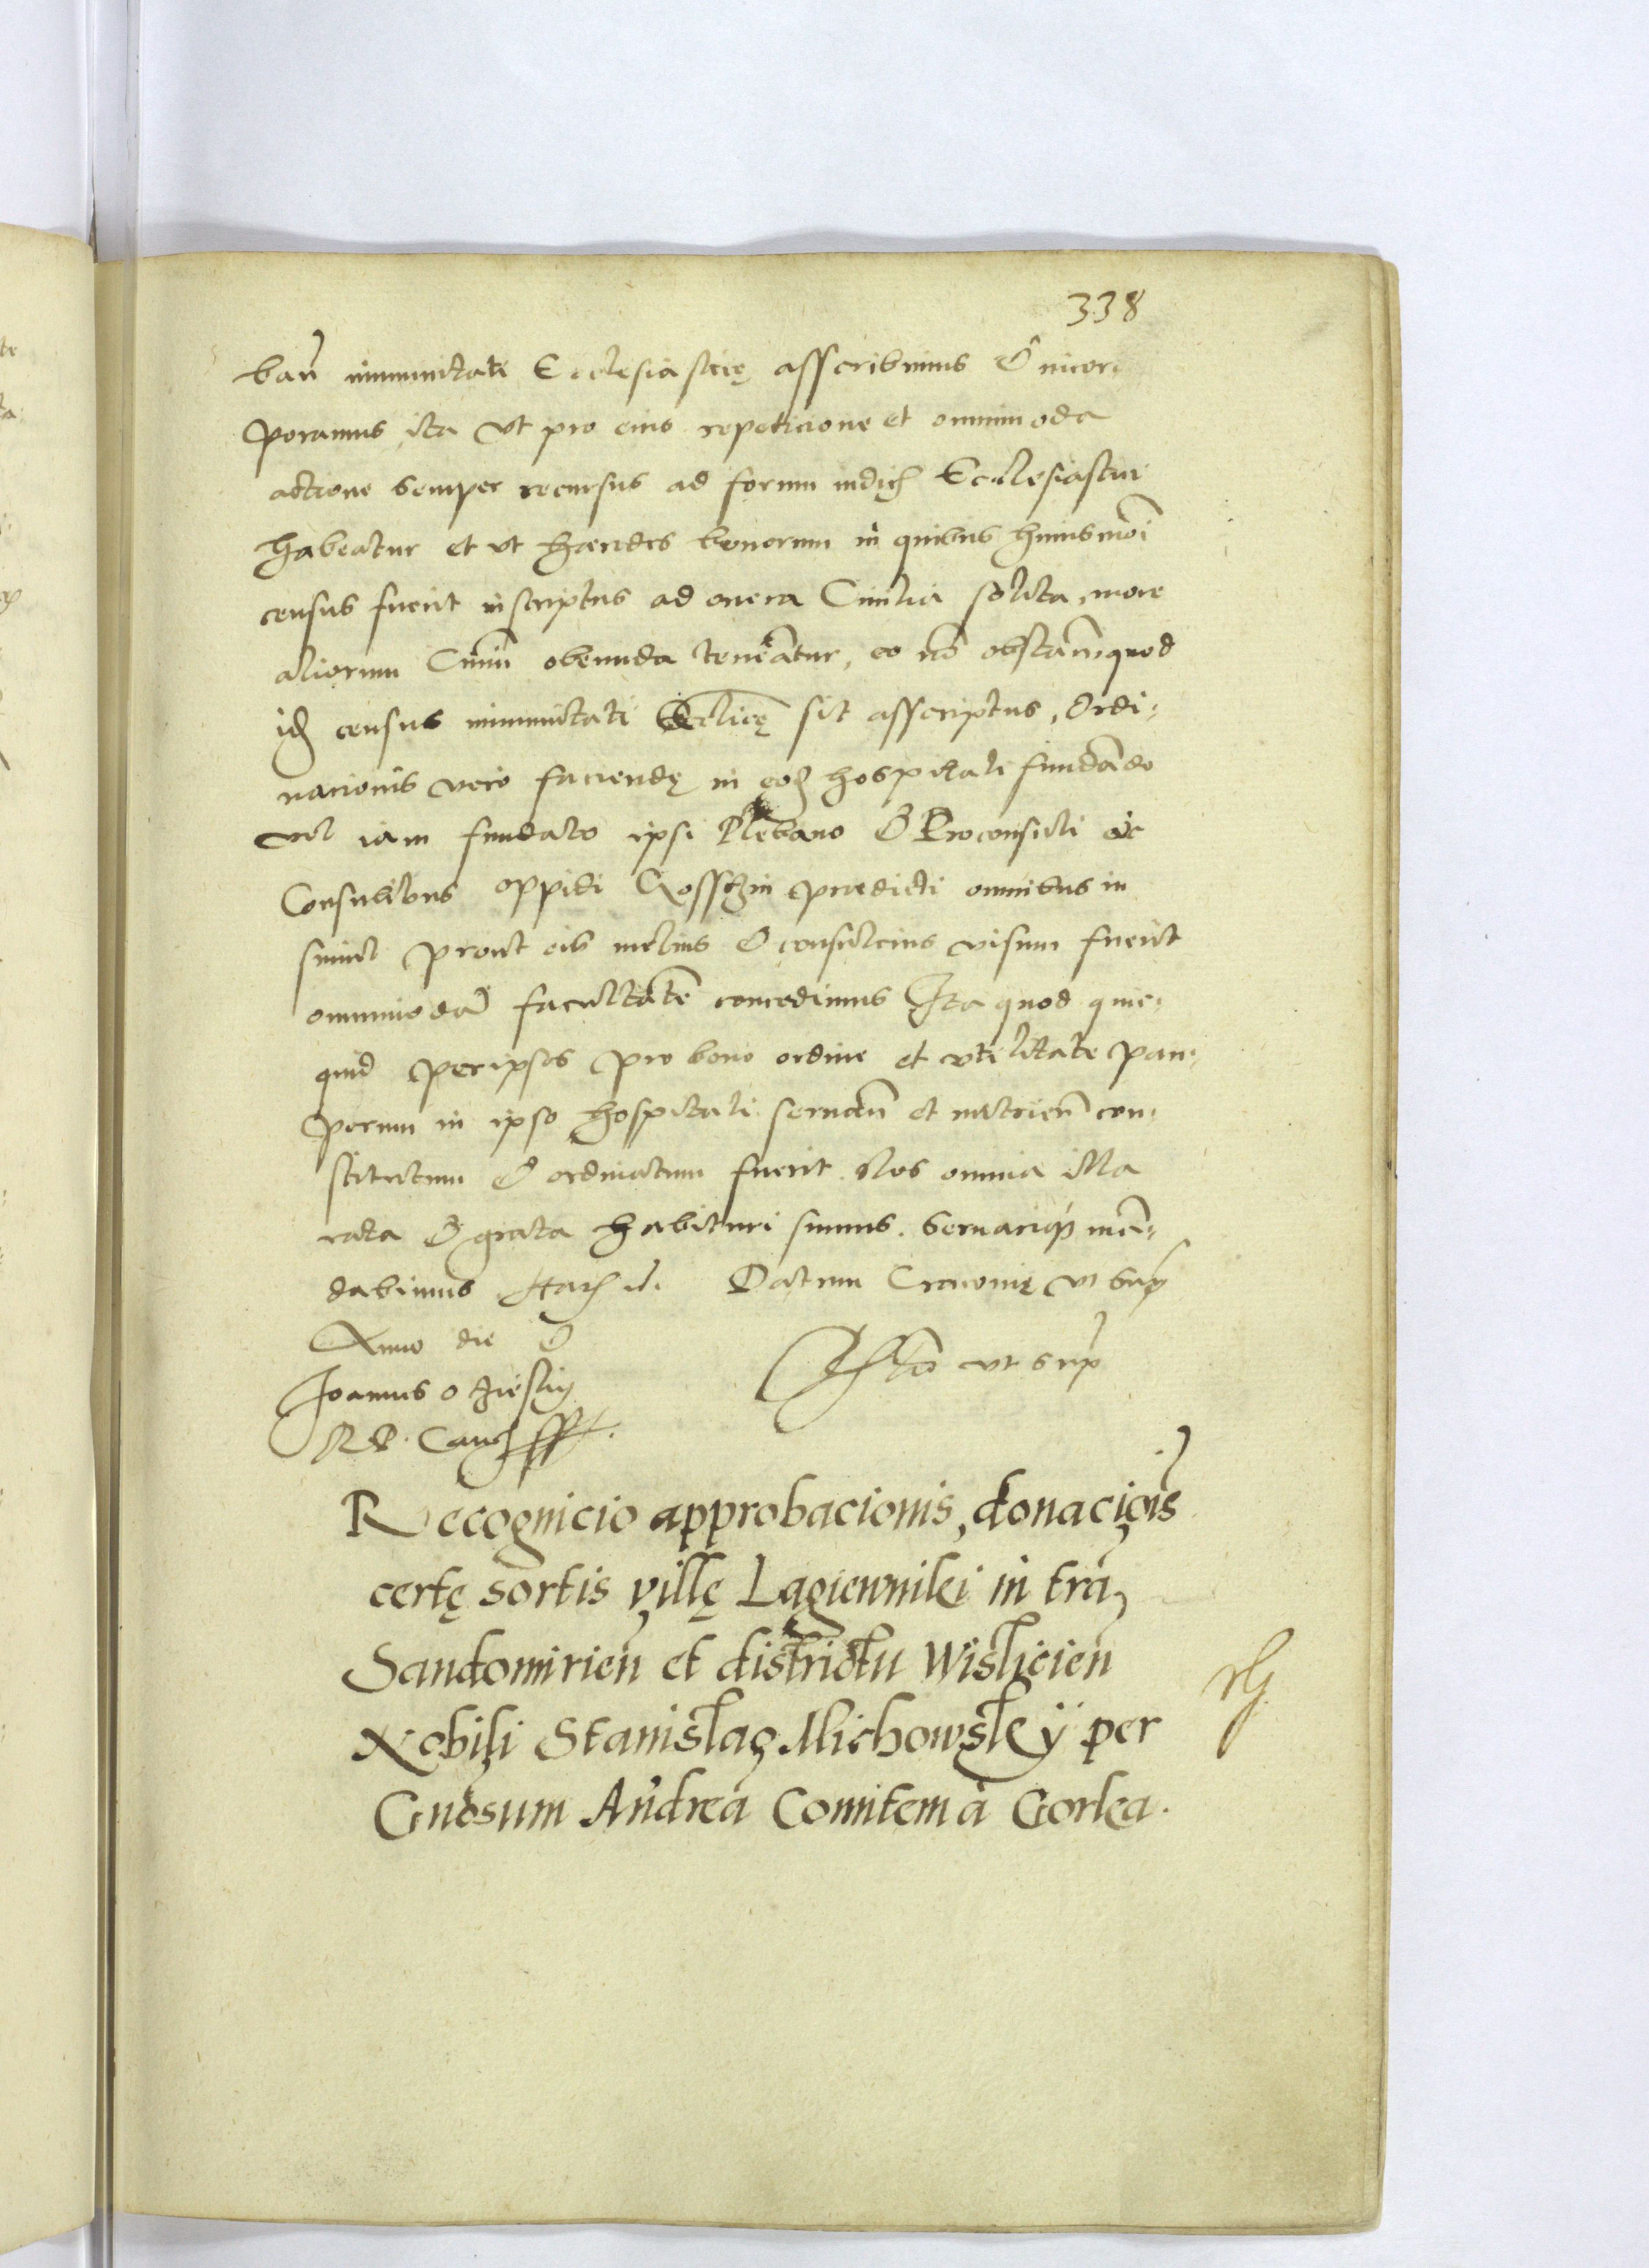 338
bañ immunitati Ecclesiasticę asscribimus & incor-
poramus ita vt pro eius repeticione et omnimoda
actione semper recursus ad forum iudicÿ Ecclesiastici
habeatur et vt hæredes bonorum in quibus huiusmõi
census fuerit inscriptus ad onera Ciuilia solita, more
aliorum Ciuiũ obeunda teneãtur, eo nõ obstañ quod
idẽ census immunitati Ecclicę sit asscriptus, Ordi-
nacionis vero faciendę in eodẽ hospitali fundãdo
vel iam fundato ipsi Plebano & Proconsuli ac
Consulibus oppidi prædicti omnibus in
simul prout eis melius & consulcius visum fuerit
omnimodã facultatẽ concedimus Ita quod quic-
quid per ipsos pro bono ordine et vtilitate pau-
perum in ipso hospitali seruañ et nutrieñ con-
stitutum & ordinatum fuerit. Nos omnia illa
rata & grata habituri sumus. Seruariq3 mã-
dabimus Datum Cracouię vt supra
Anno die &
Joannes Ocieski
R P. Canc. sst.
Testa vt supra
Recognicio approbacionis, donaciõis
certę sortis villę Lagiewniki in trã
Sandomirieñ et districtu Wislicieñ
Nobili Stanislao Michowskÿ per
Gñosum Andreã Comitem à Gorka.